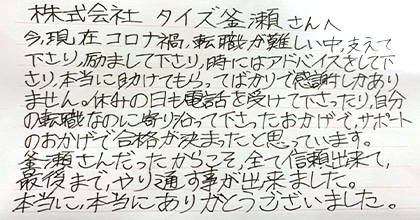 株式会社 タイズ釜瀬さんへ
今、現在コロナ禍、転職が難しい中、支えて
下さり、励まして下さり、時にはアドバイスをして下
さり、本当に助けてもらってばかりで感謝しかあり
ません。休みの日も電話を受けて下さったり、自分
の転職なのに寄り沿って下さったおかげで、サポート
のおかげで合格が決まったと思っています。
釜瀬さんだったからこそ、全て信頼出来て、
最後まで、やり通す事が出来ました。
本当に、本当にありがとうございました。